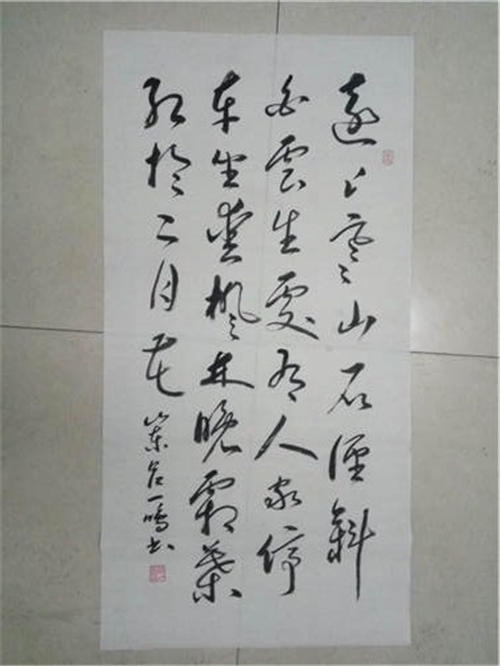 遠上寒山石徑斜
白雲生處有人家停
車坐愛楓林晚霜葉
紅於二月花
山東一鳴書